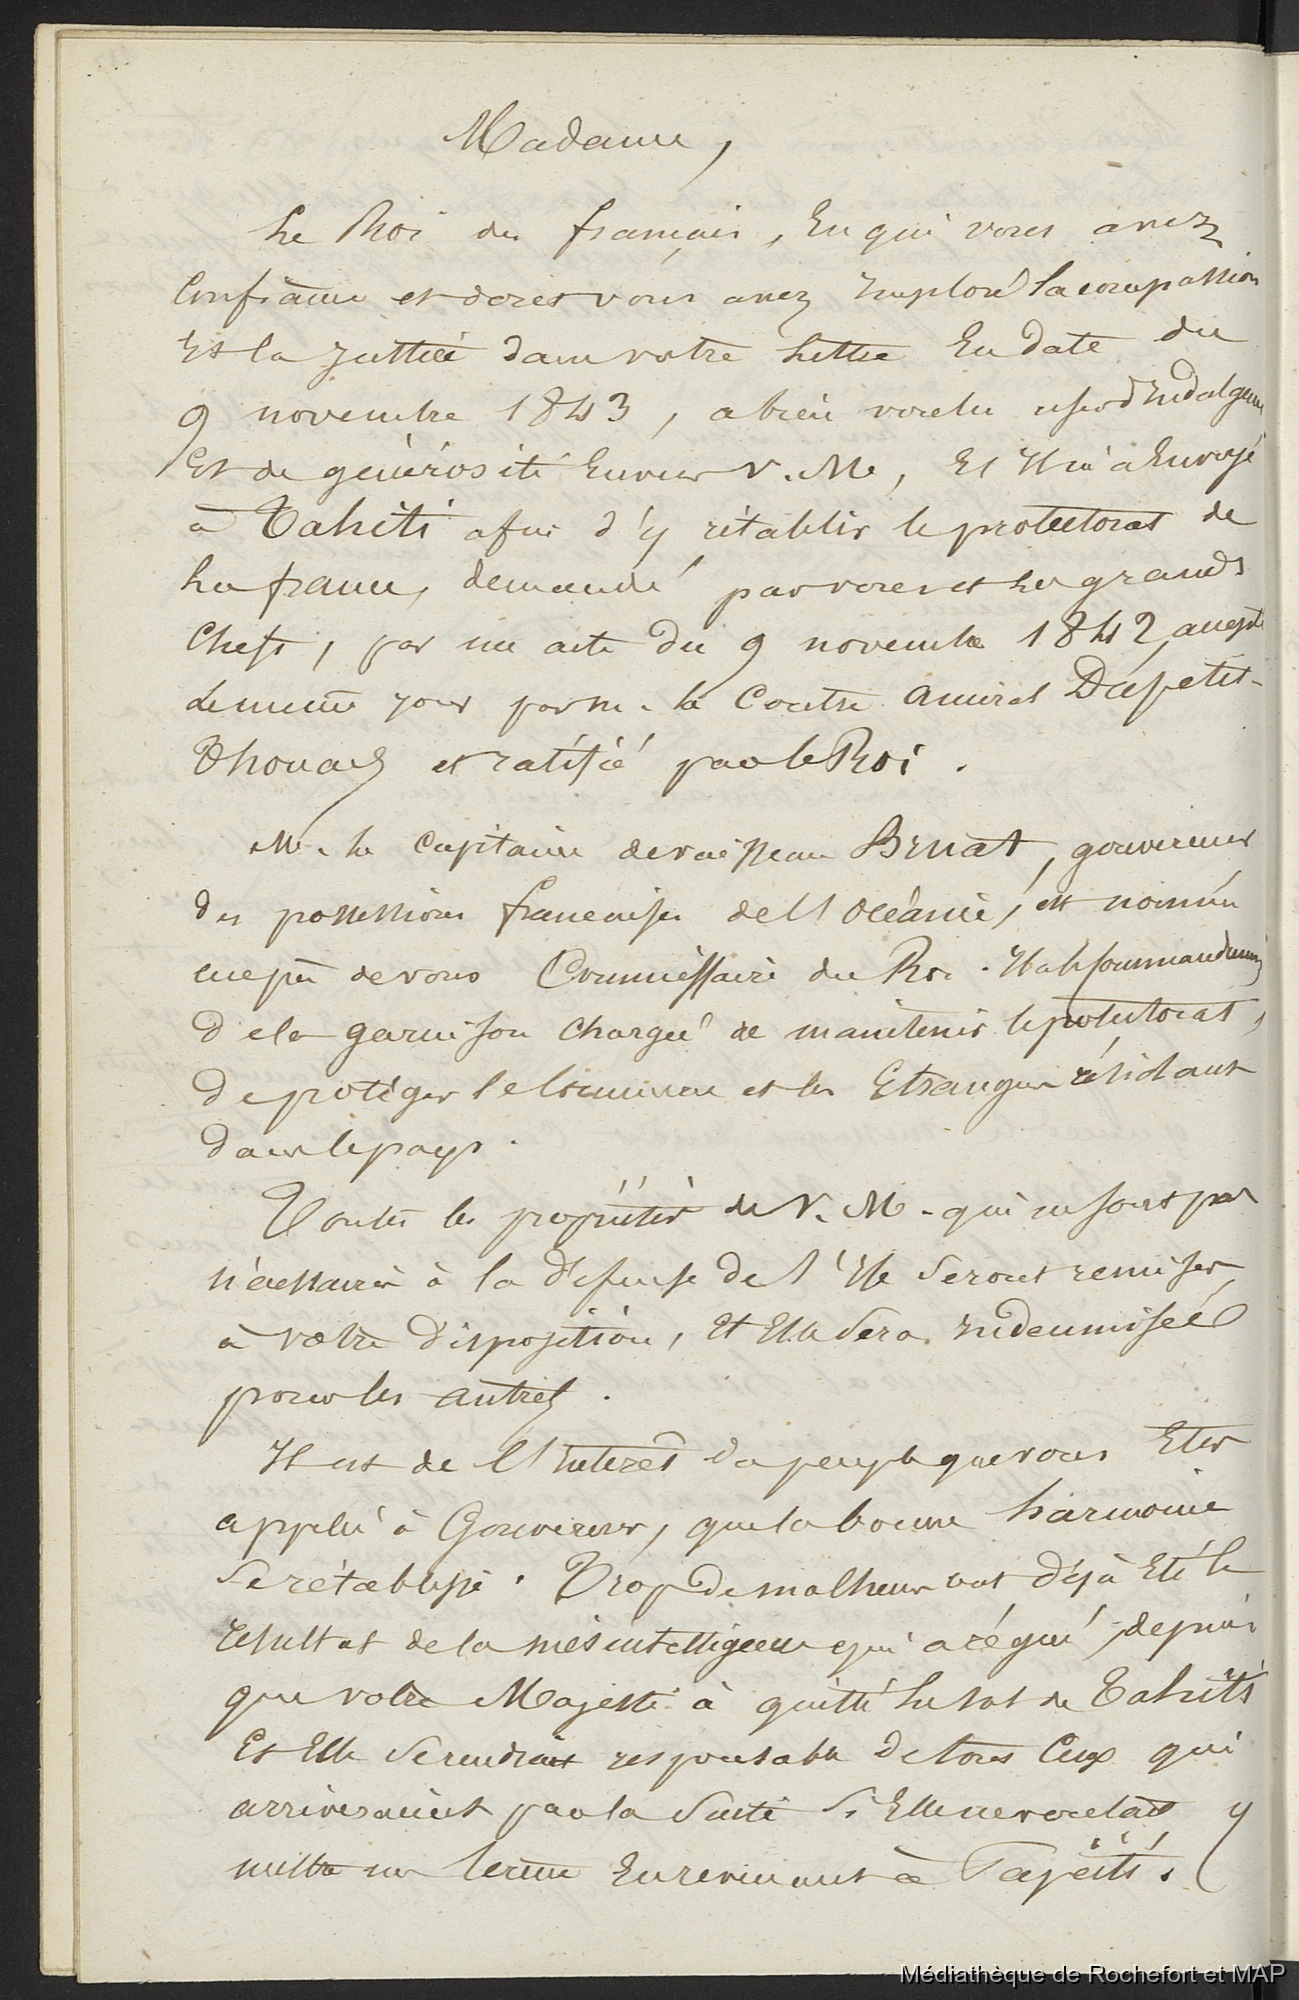 Madame,
Le Roi des français, En qui vous avez
Confiance et dont vous avez Imploré la compassion
Et la justice dans votre lettre En date du
9 novembre 1843, a bien voulu user d'Indulgence
Et de générosité Envers V. M., Et Il m'a Envoyé
à Tahiti afin d'y rétablir le protectorat de
La france, demandé par vous et les grands
Chefs, par un acte du 9 novembre 1842, accepté
le même jour par M. le Contre Amiral Dupetit-
Thouars et ratifié par le Roi.
M. le Capitaine de vaisseau Bruat, gouverneur
des possessions françaises de l'Océanie, est nommé
auprès de vous Commissaire du Roi. Il a le Commandement
de la garnison chargée de maintenir le protectorat,
De protéger le Commerce et les Etrangers résidant
Dans le pays.
Toutes les propriétés de V. M. qui ne sont pas
nécessaires à la Défense de l'Ile Seront remises
à votre Disposition, Et Elle Sera Indemnisée
pour les autres.
Il est de l'Intérêt du peuple que vous Etes
appelée à Gouverner, que la bonne harmonie
Se rétablisse. Trop De malheurs ont Déjà Eté le
résultat de la mésintelligence qui a régné, depuis
que votre Majesté à quitté le sol de Tahiti
Et Elle Se rendrait responsable De tous Ceux qui
arriveraient par la Suite Si Elle ne voulait y
mettre un terme En revenant à Papéïti.
Médiathèque de Rochefort et MAP